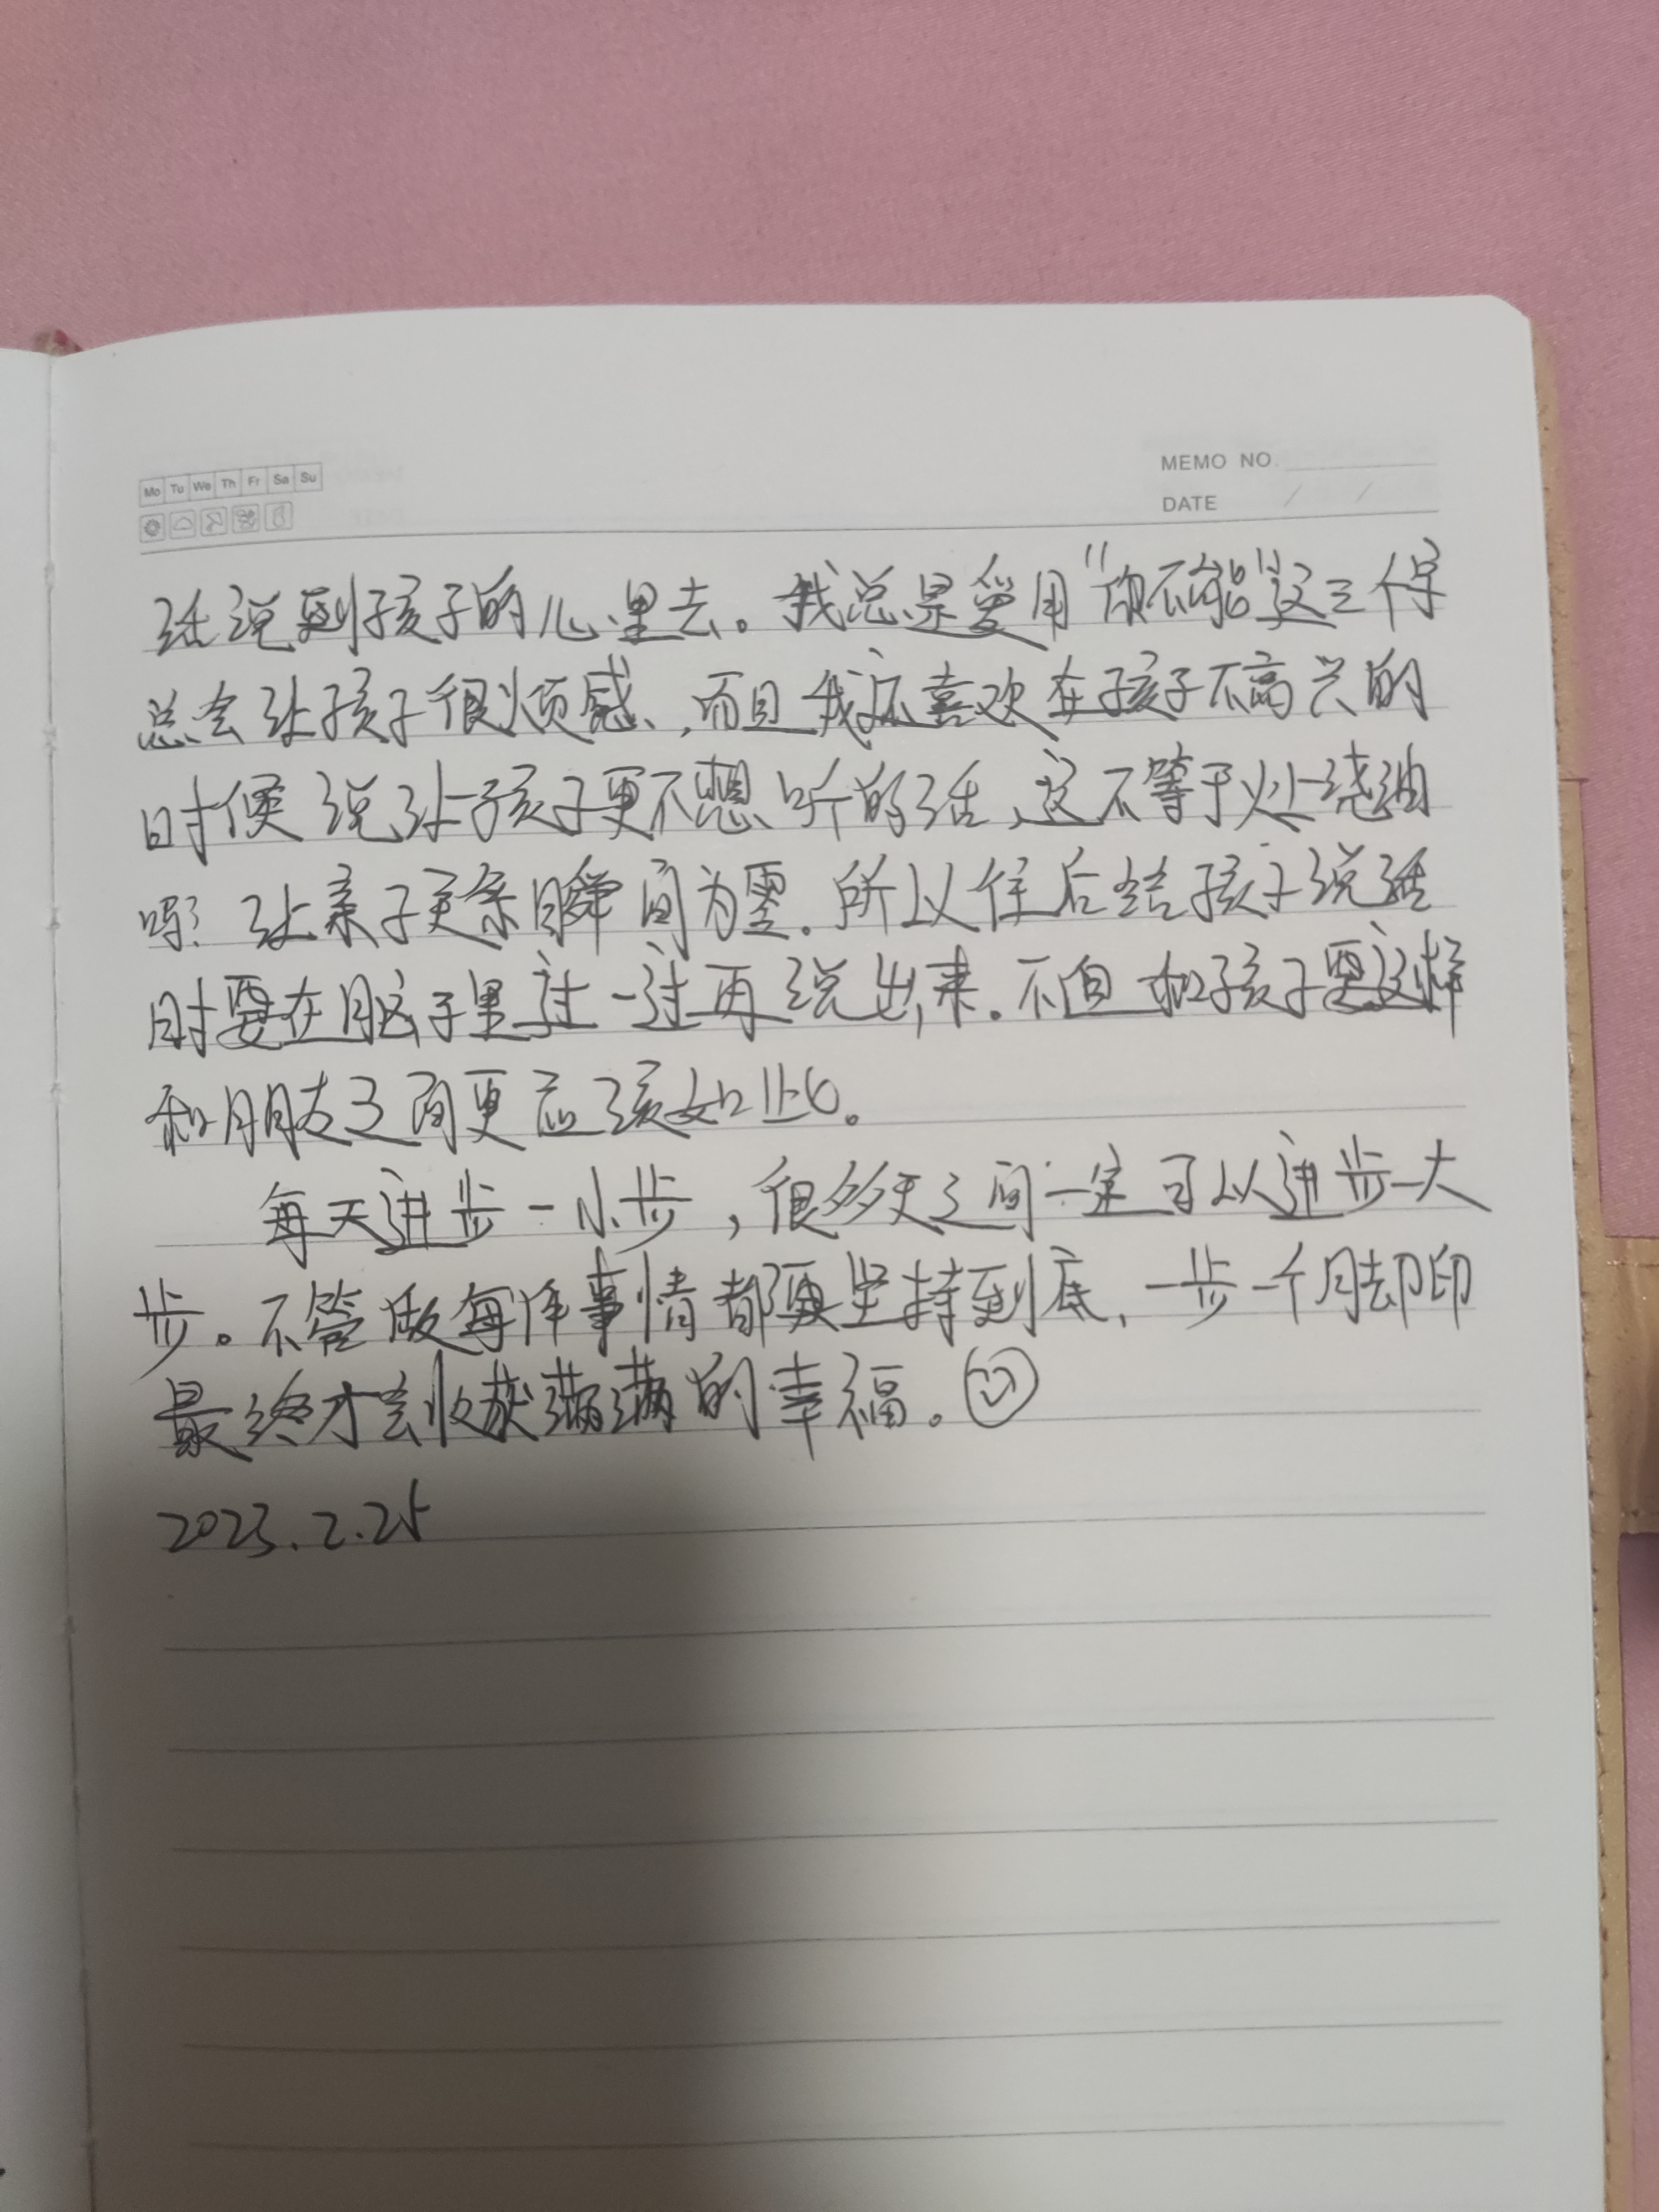 Mo Tu We Th Fr Sa Su
MEMO NO.
DATE / /
话说到孩子的心里去。我总是爱用“你不能”这三个字
总会让孩子很烦感,而且我还喜欢在孩子不高兴的
时候说让孩子更不想听的话,这不等于火上浇油
吗?让亲子关系瞬间为零.所以往后给孩子说话
时要在脑子里过一过再说出来.不但和孩子要这样
和朋友之间更应该如此。
每天进步一小步,很多天之间一定可以进步一大
步。不管做每件事情都要坚持到底,一步一个脚印
最终才会收获满满的幸福。
2023.2.25